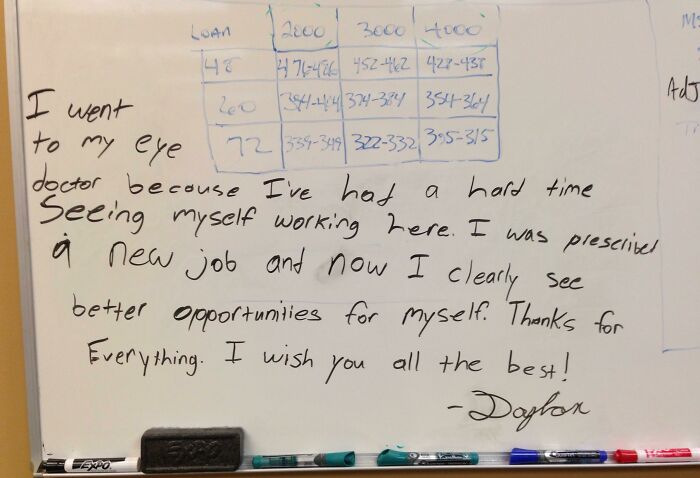 LOAN 2000 3000 4000
48 476-486 452-462 428-438
60 374-384 354-364
72 339-349 322-332 305-315
MS
AdJ
I went
to my eye
doctor because I've had a hard time
Seeing myself working here. I was prescribed
a new job and now I clearly see
better opportunities for myself. Thanks for
Everything. I wish you all the best!
EXPO
EXPO